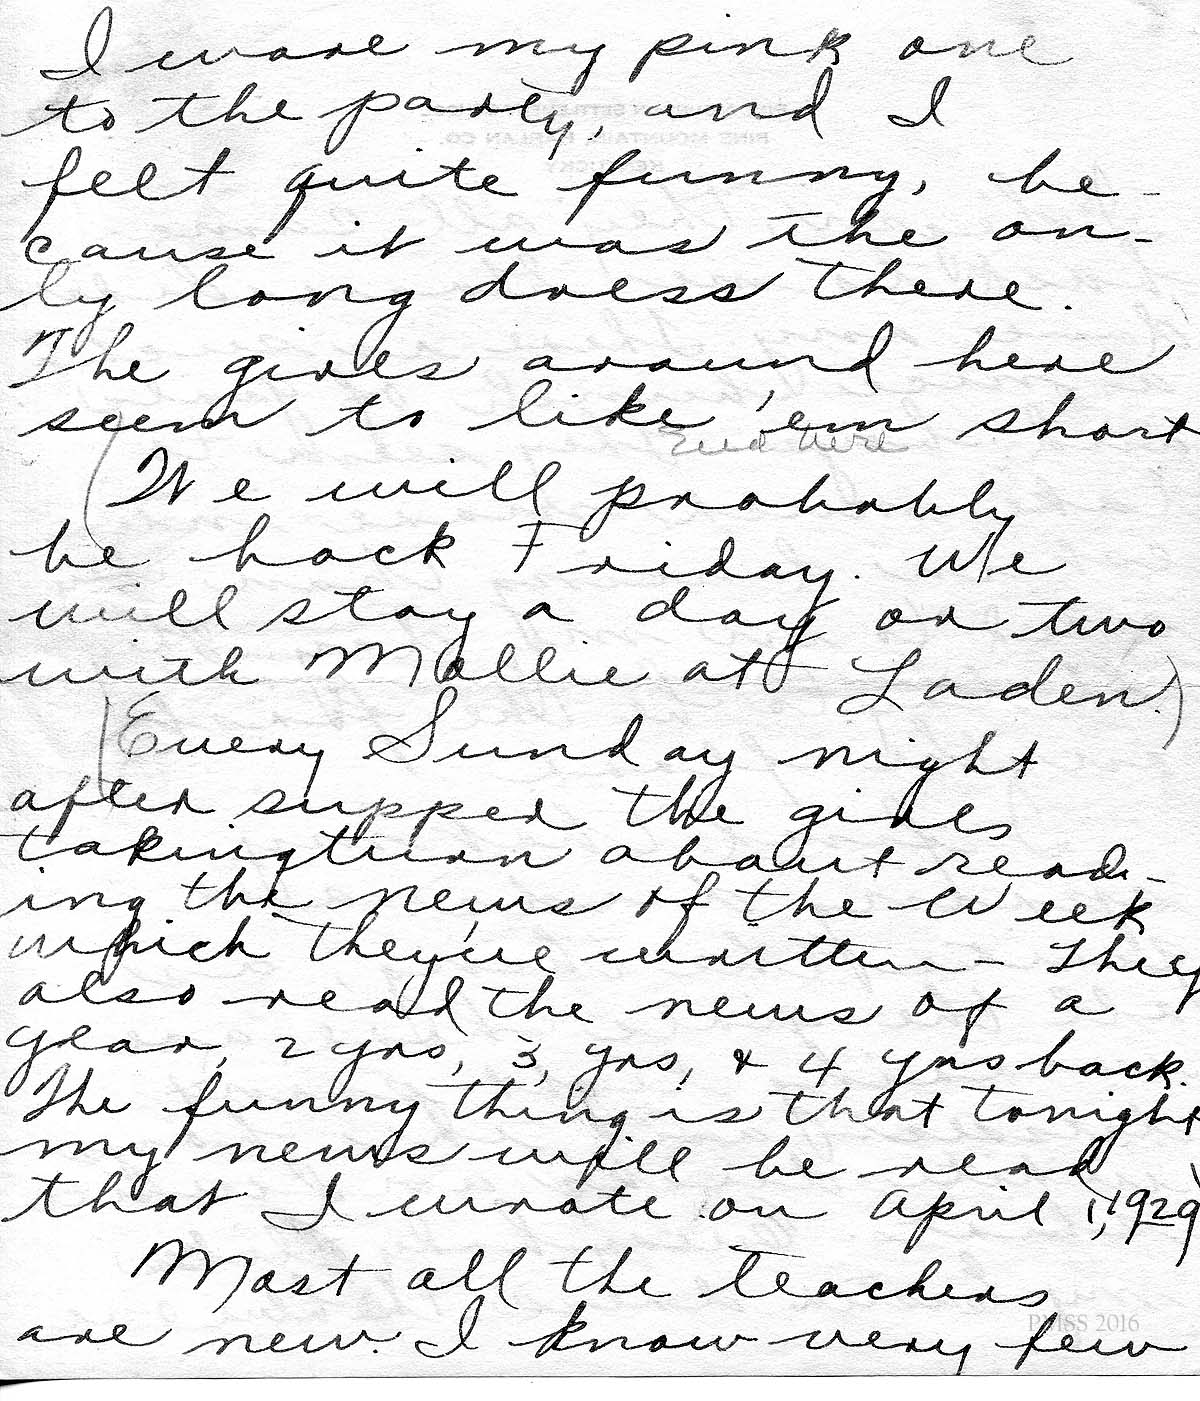 I wore my pink one
to the party, and I
felt quite funny, be-
cause it was the on-
ly long dress there.
The girls around here
seem to like 'em short
End here
(We will probably
be back Friday. We
will stay a day or two
with Mollie at Laden.)
(Every Sunday night
after supper the girls
taking turn about read-
ing the news of the week
which they've written - They
also read the news of a
year, 2 yrs, 3, yrs, & 4 yrs back.
The funny thing is that tonight
my news will be read
that I wrote on April 1, 1929)
Most all the teachers
are new. I know very few
PMSS 2016